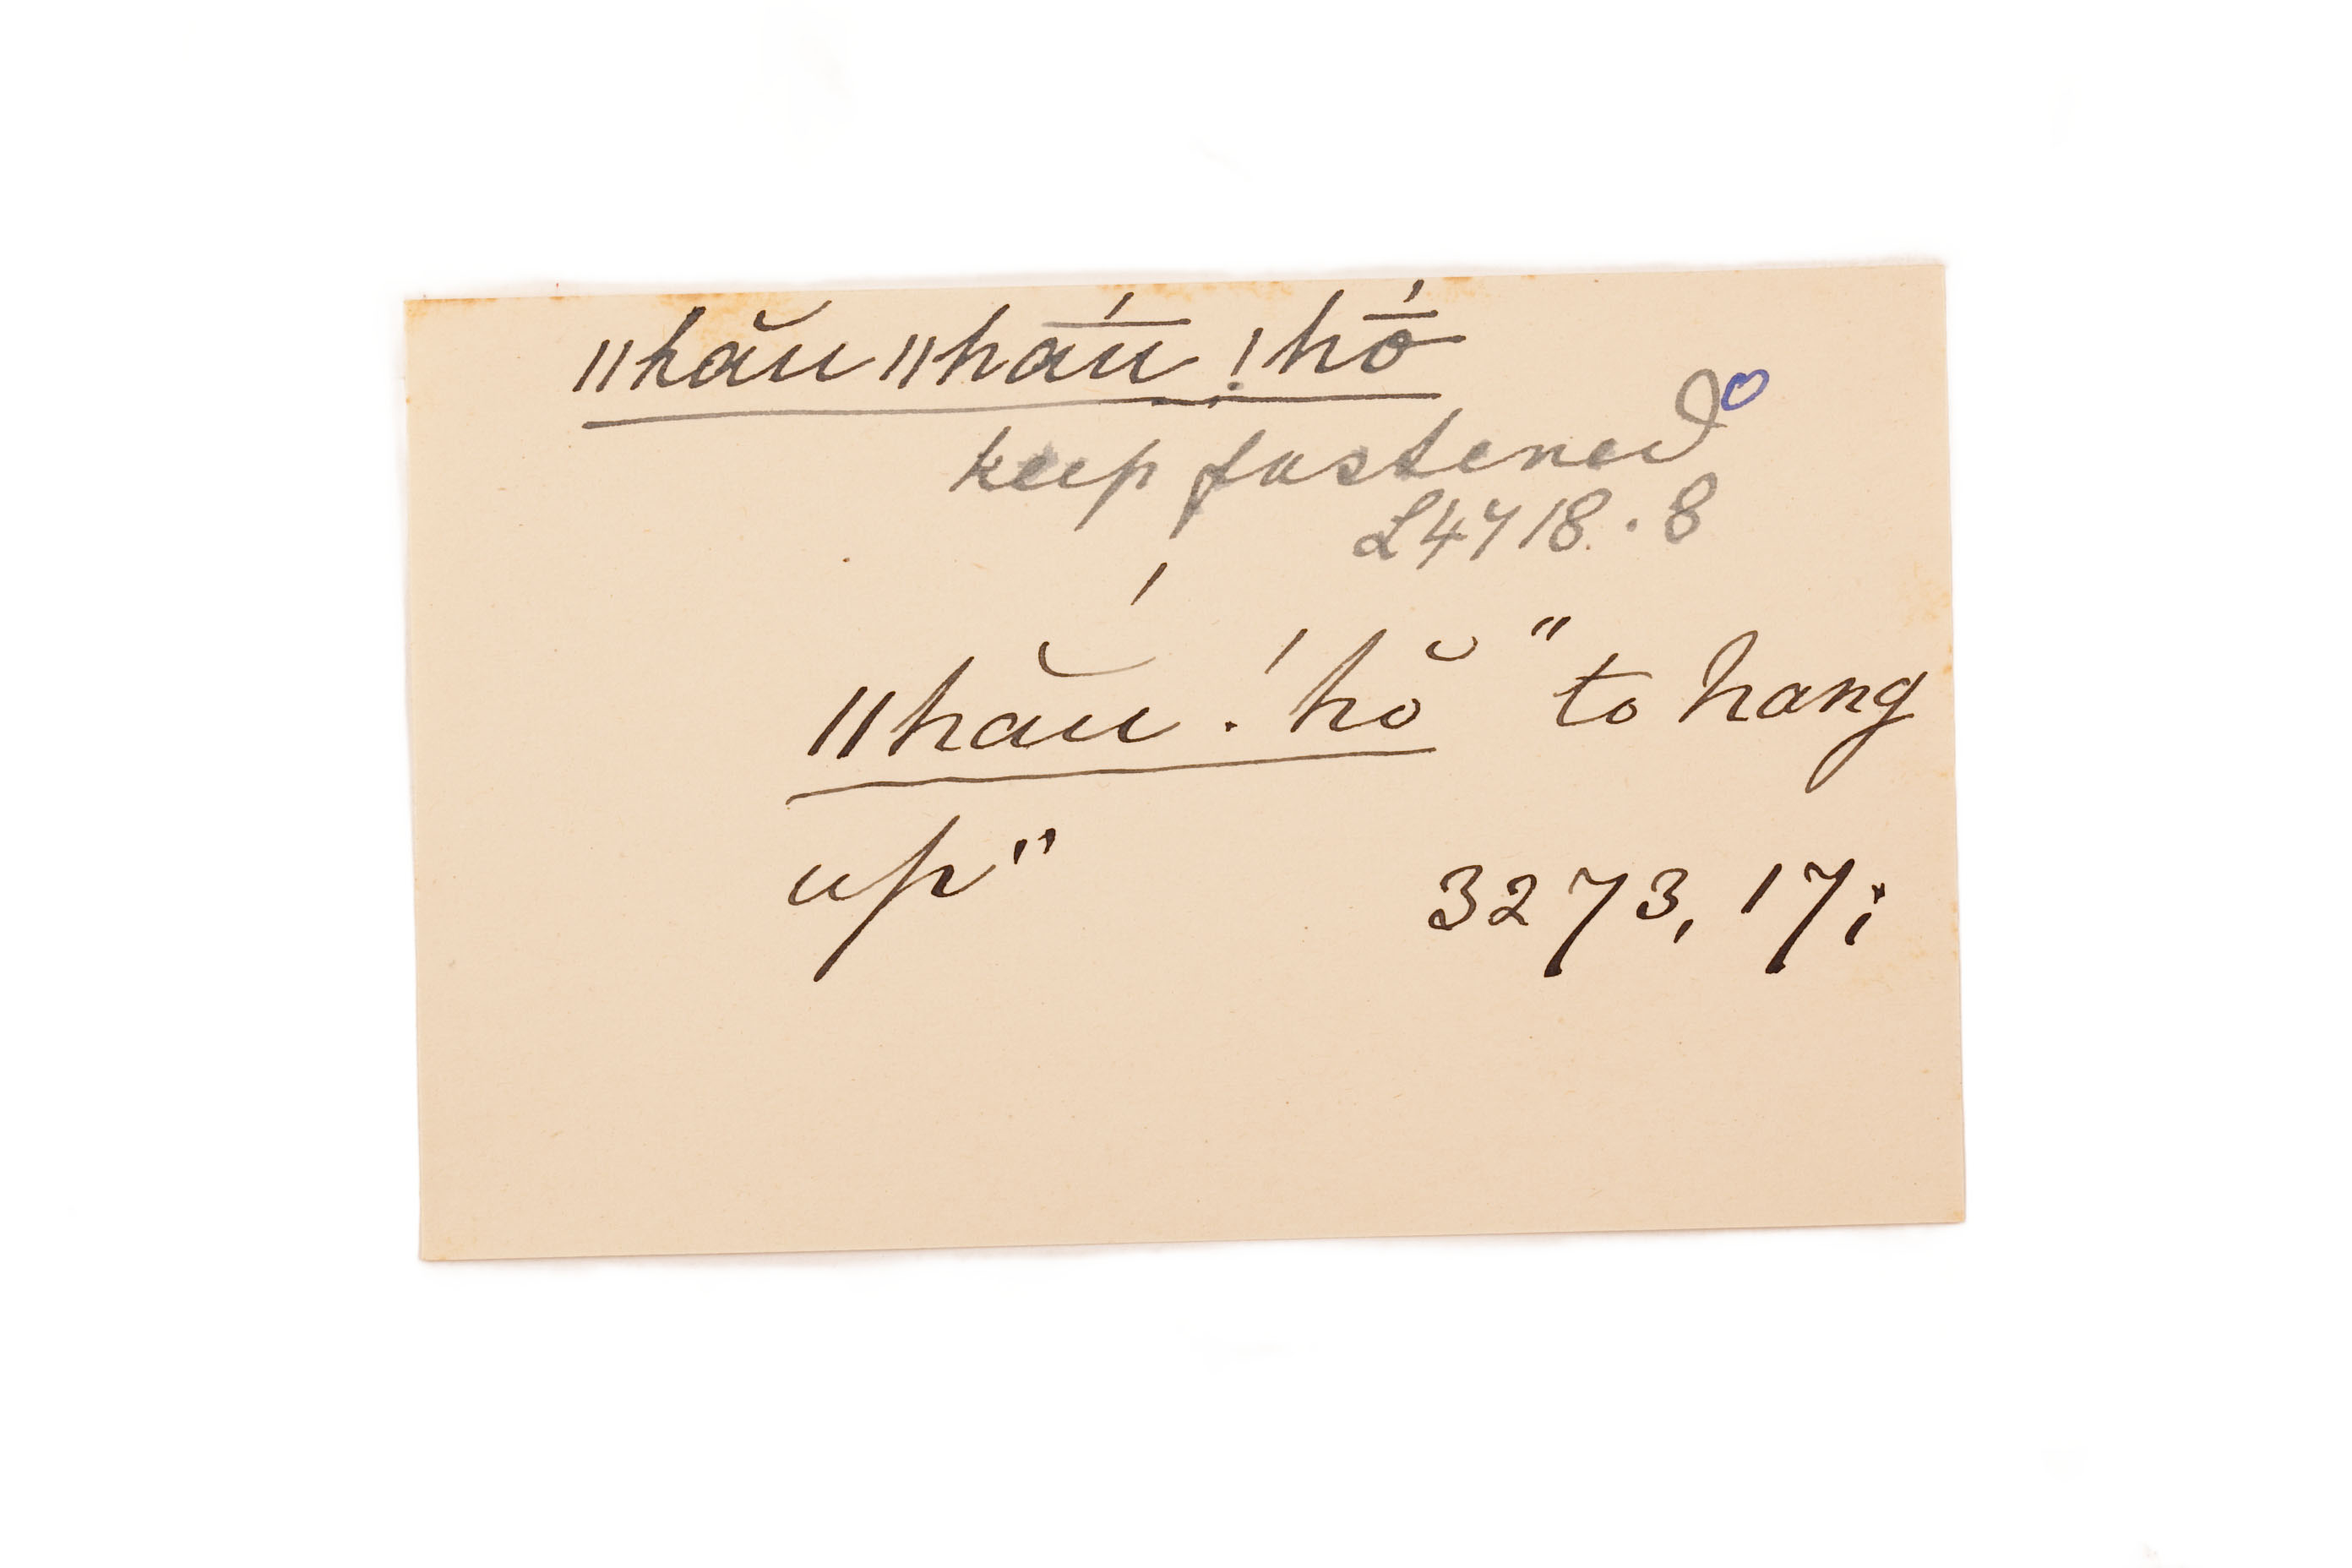 ǁhăuǁhā́u !hṓ
keep fastened
L4718.8
ǁhắu !hŏ "to hang
up" 3273, 17;